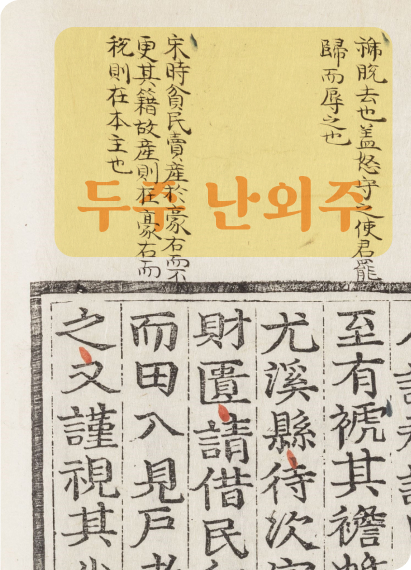 褫脫去也盖怒守之使君罷
歸而辱之也
宋時貧民賣産於豪右而不
更其籍故産則在豪右而
税則在本主也
두주 난외주
至有褫其襜
尤溪縣待次
財匱請借民
而田入見戶
之文謹視其